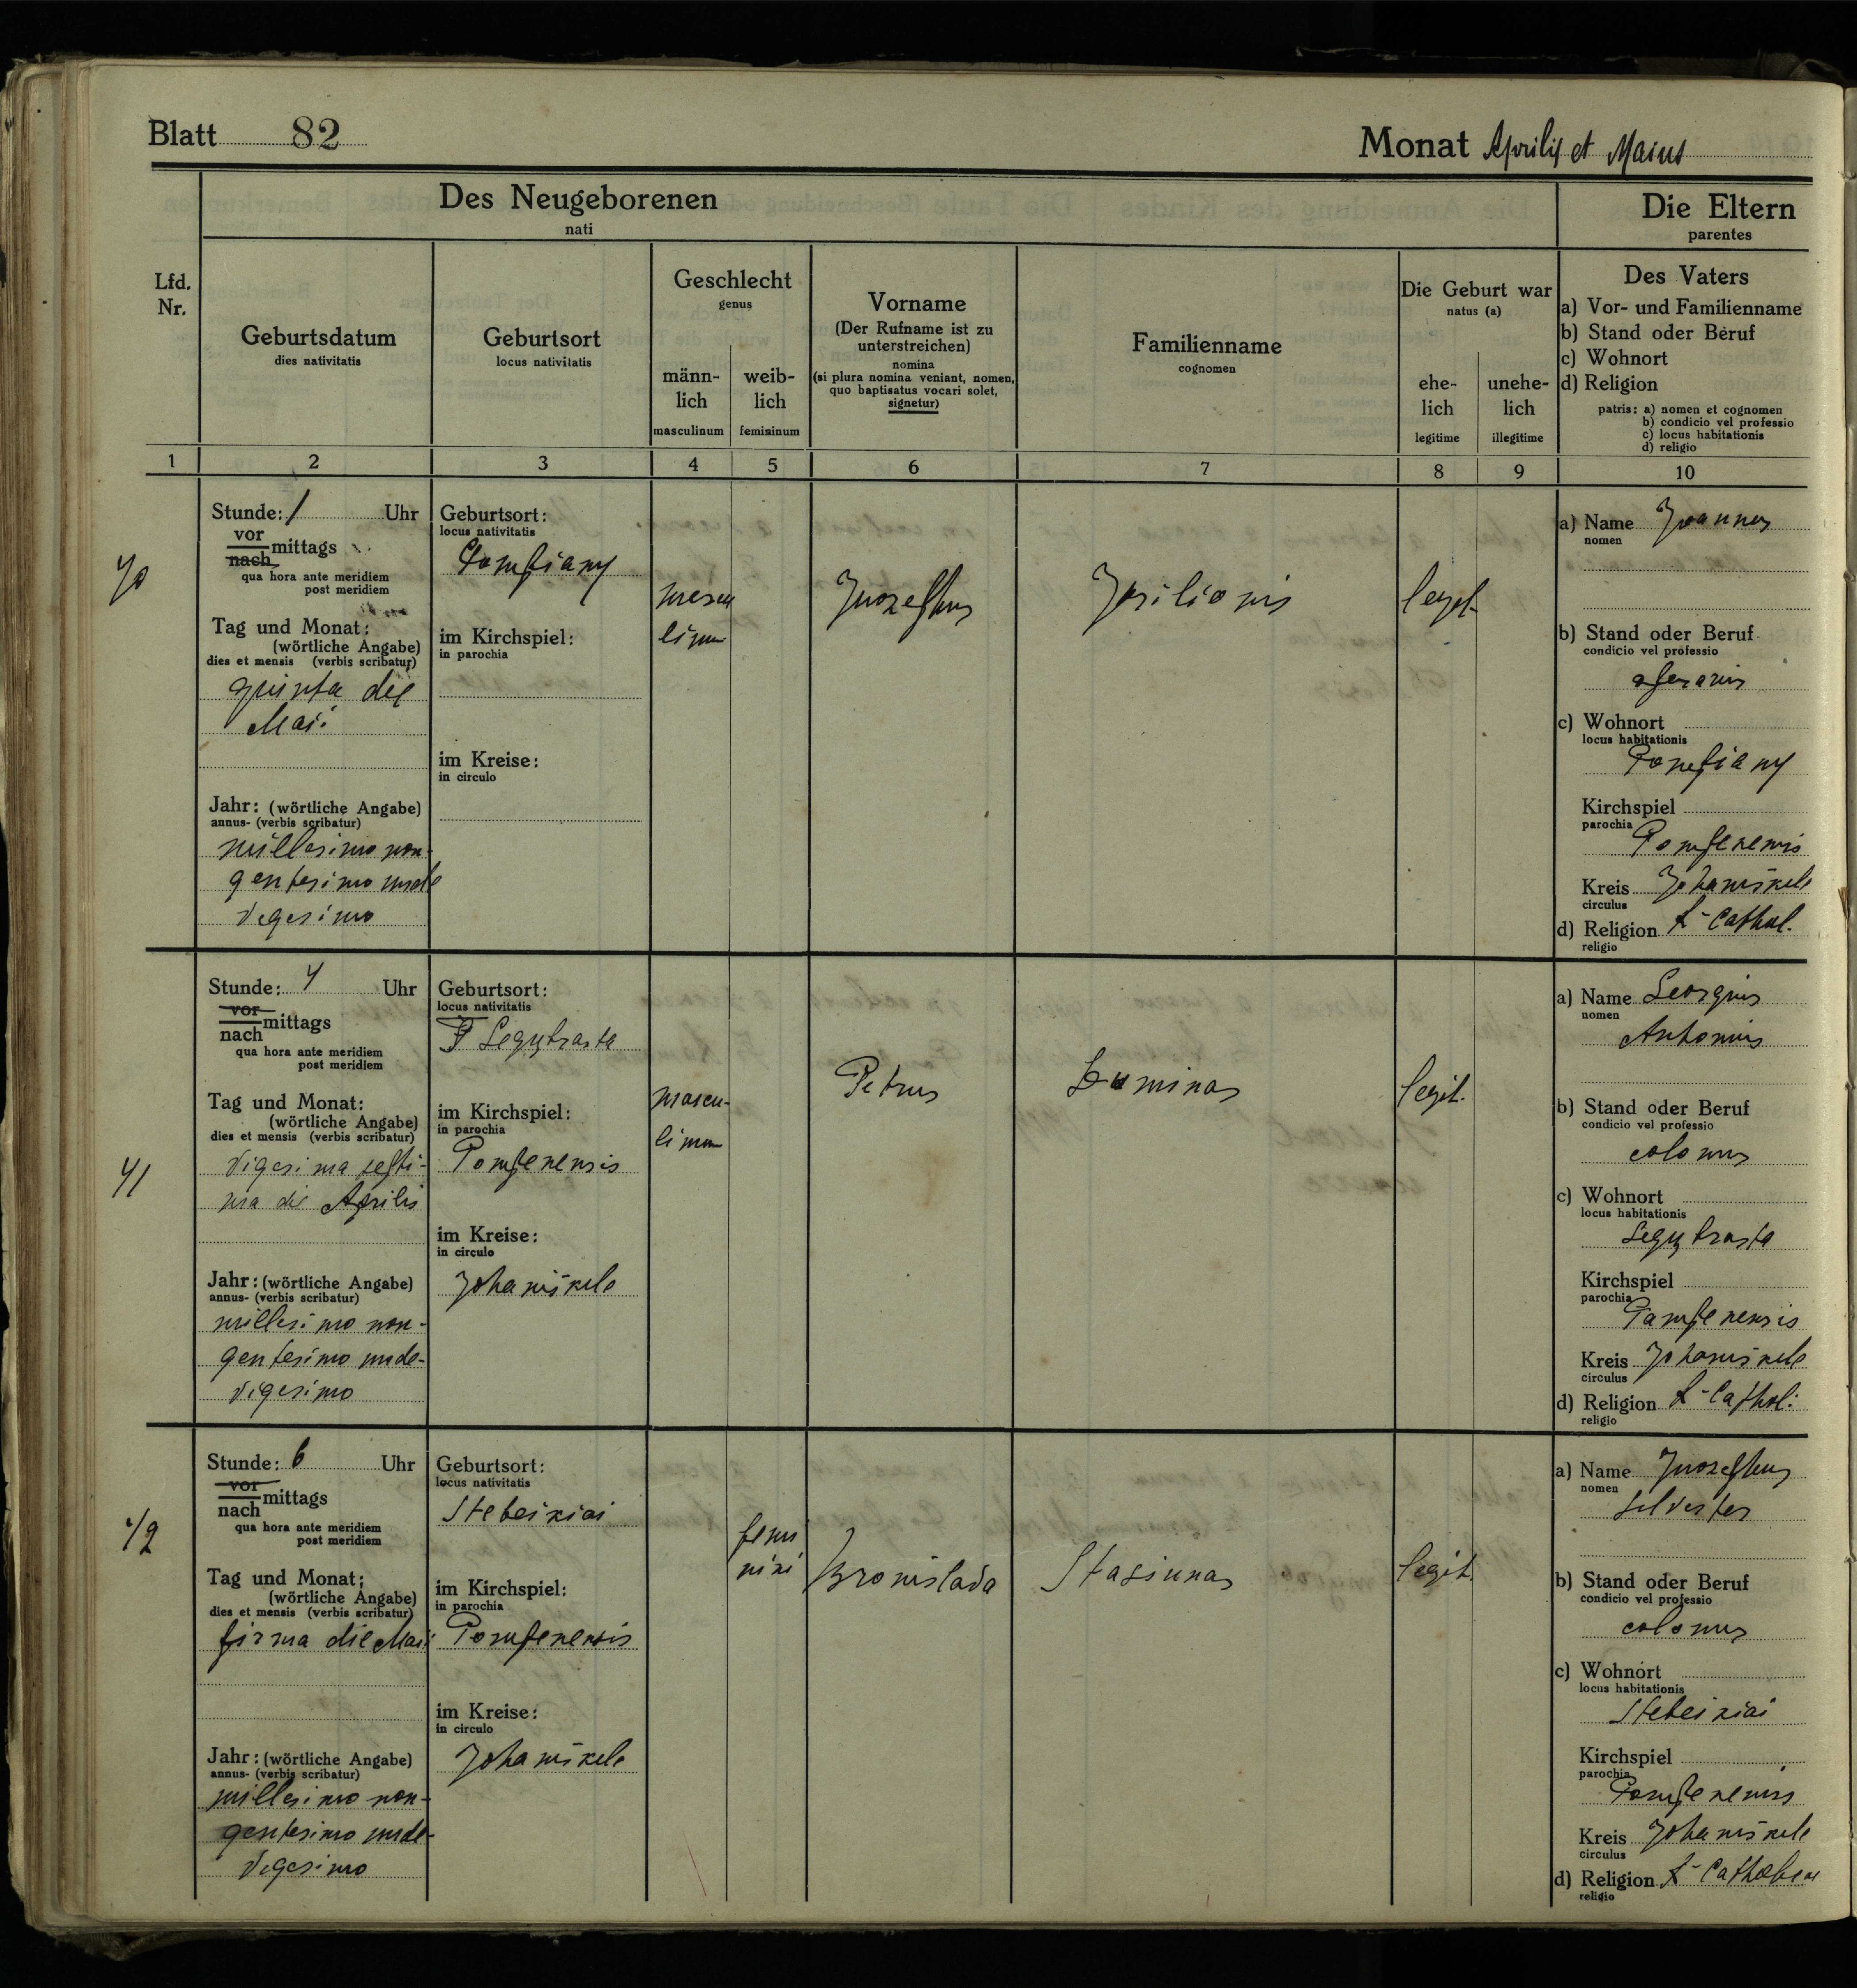 Blatt 82
Monat Aprilis et Maius
Des Neugeborenen
nati
Die Eltern
parentes
Lfd.
Nr.
Geburtsdatum
dies nativitatis
Geburtsort
locus nativitatis
Geschlecht
genus
männ-
lich
masculinum
weib-
lich
femininum
Vorname
(Der Rufname ist zu
unterstreichen)
nomina
(si plura nomina veniant, nomen,
quo baptisatus vocari solet,
signetur)
Familienname
cognomen
Die Geburt war
natus (a)
ehe-
lich
legitime
unehe-
lich
illegitime
Des Vaters
a) Vor- und Familienname
b) Stand oder Beruf
c) Wohnort
d) Religion
patris: a) nomen et cognomen
b) condicio vel professio
c) locus habitationis
d) religio
1 2 3 4 5 6 7 8 9 10
40
Stunde: 1 Uhr
vor
nach mittags
qua hora ante meridiem
post meridiem
Tag und Monat:
(wörtliche Angabe)
dies et mensis (verbis scribatur)
quinta die
Maii
Jahr: (wörtliche Angabe)
annus- (verbis scribatur)
millesimo non-
gentesimo unde
vigesimo
Geburtsort:
locus nativitatis
Pompiany
im Kirchspiel:
in parochia
im Kreise:
in circulo
mascu
linum
Juozephus
legit.
a) Name Joannes
nomen
b) Stand oder Beruf
condicio vel professio
c) Wohnort
locus habitationis
Pompiany
Kirchspiel
parochia
Pompenensis
Kreis Johaniškele
circulus
d) Religion R-Cathol.
religio
41
Stunde: 4 Uhr
vor
nach mittags
qua hora ante meridiem
post meridiem
Tag und Monat:
(wörtliche Angabe)
dies et mensis (verbis scribatur)
vigesima septi-
ma die Aprilis
Jahr: (wörtliche Angabe)
annus- (verbis scribatur)
millesimo non-
gentesimo unde-
vigesimo
Geburtsort:
locus nativitatis
im Kirchspiel:
in parochia
Pompenensis
im Kreise:
in circulo
Johaniškele
mascu-
linum
Petrus
Luminas
legit.
a) Name Georgius
nomen
Antonius
b) Stand oder Beruf
condicio vel professio
colonus
c) Wohnort
locus habitationis
Kirchspiel
parochia
Pompenensis
Kreis Johaniškele
circulus
d) Religion R-Cathol.
religio
42
Stunde: 6 Uhr
vor
nach mittags
qua hora ante meridiem
post meridiem
Tag und Monat:
(wörtliche Angabe)
dies et mensis (verbis scribatur)
prima die Maii
Jahr: (wörtliche Angabe)
annus- (verbis scribatur)
millesimo non-
gentesimo unde-
vigesimo
Geburtsort:
locus nativitatis
Stebeikiai
im Kirchspiel:
in parochia
Pompenensis
im Kreise:
in circulo
Johaniškele
femi
nini
Bronislava
Stasiunas
legit.
a) Name Juozephus
nomen
Silvester
b) Stand oder Beruf
condicio vel professio
colonus
c) Wohnort
locus habitationis
Stebeikiai
Kirchspiel
parochia
Pompenensis
Kreis Johaniškele
circulus
d) Religion
religio